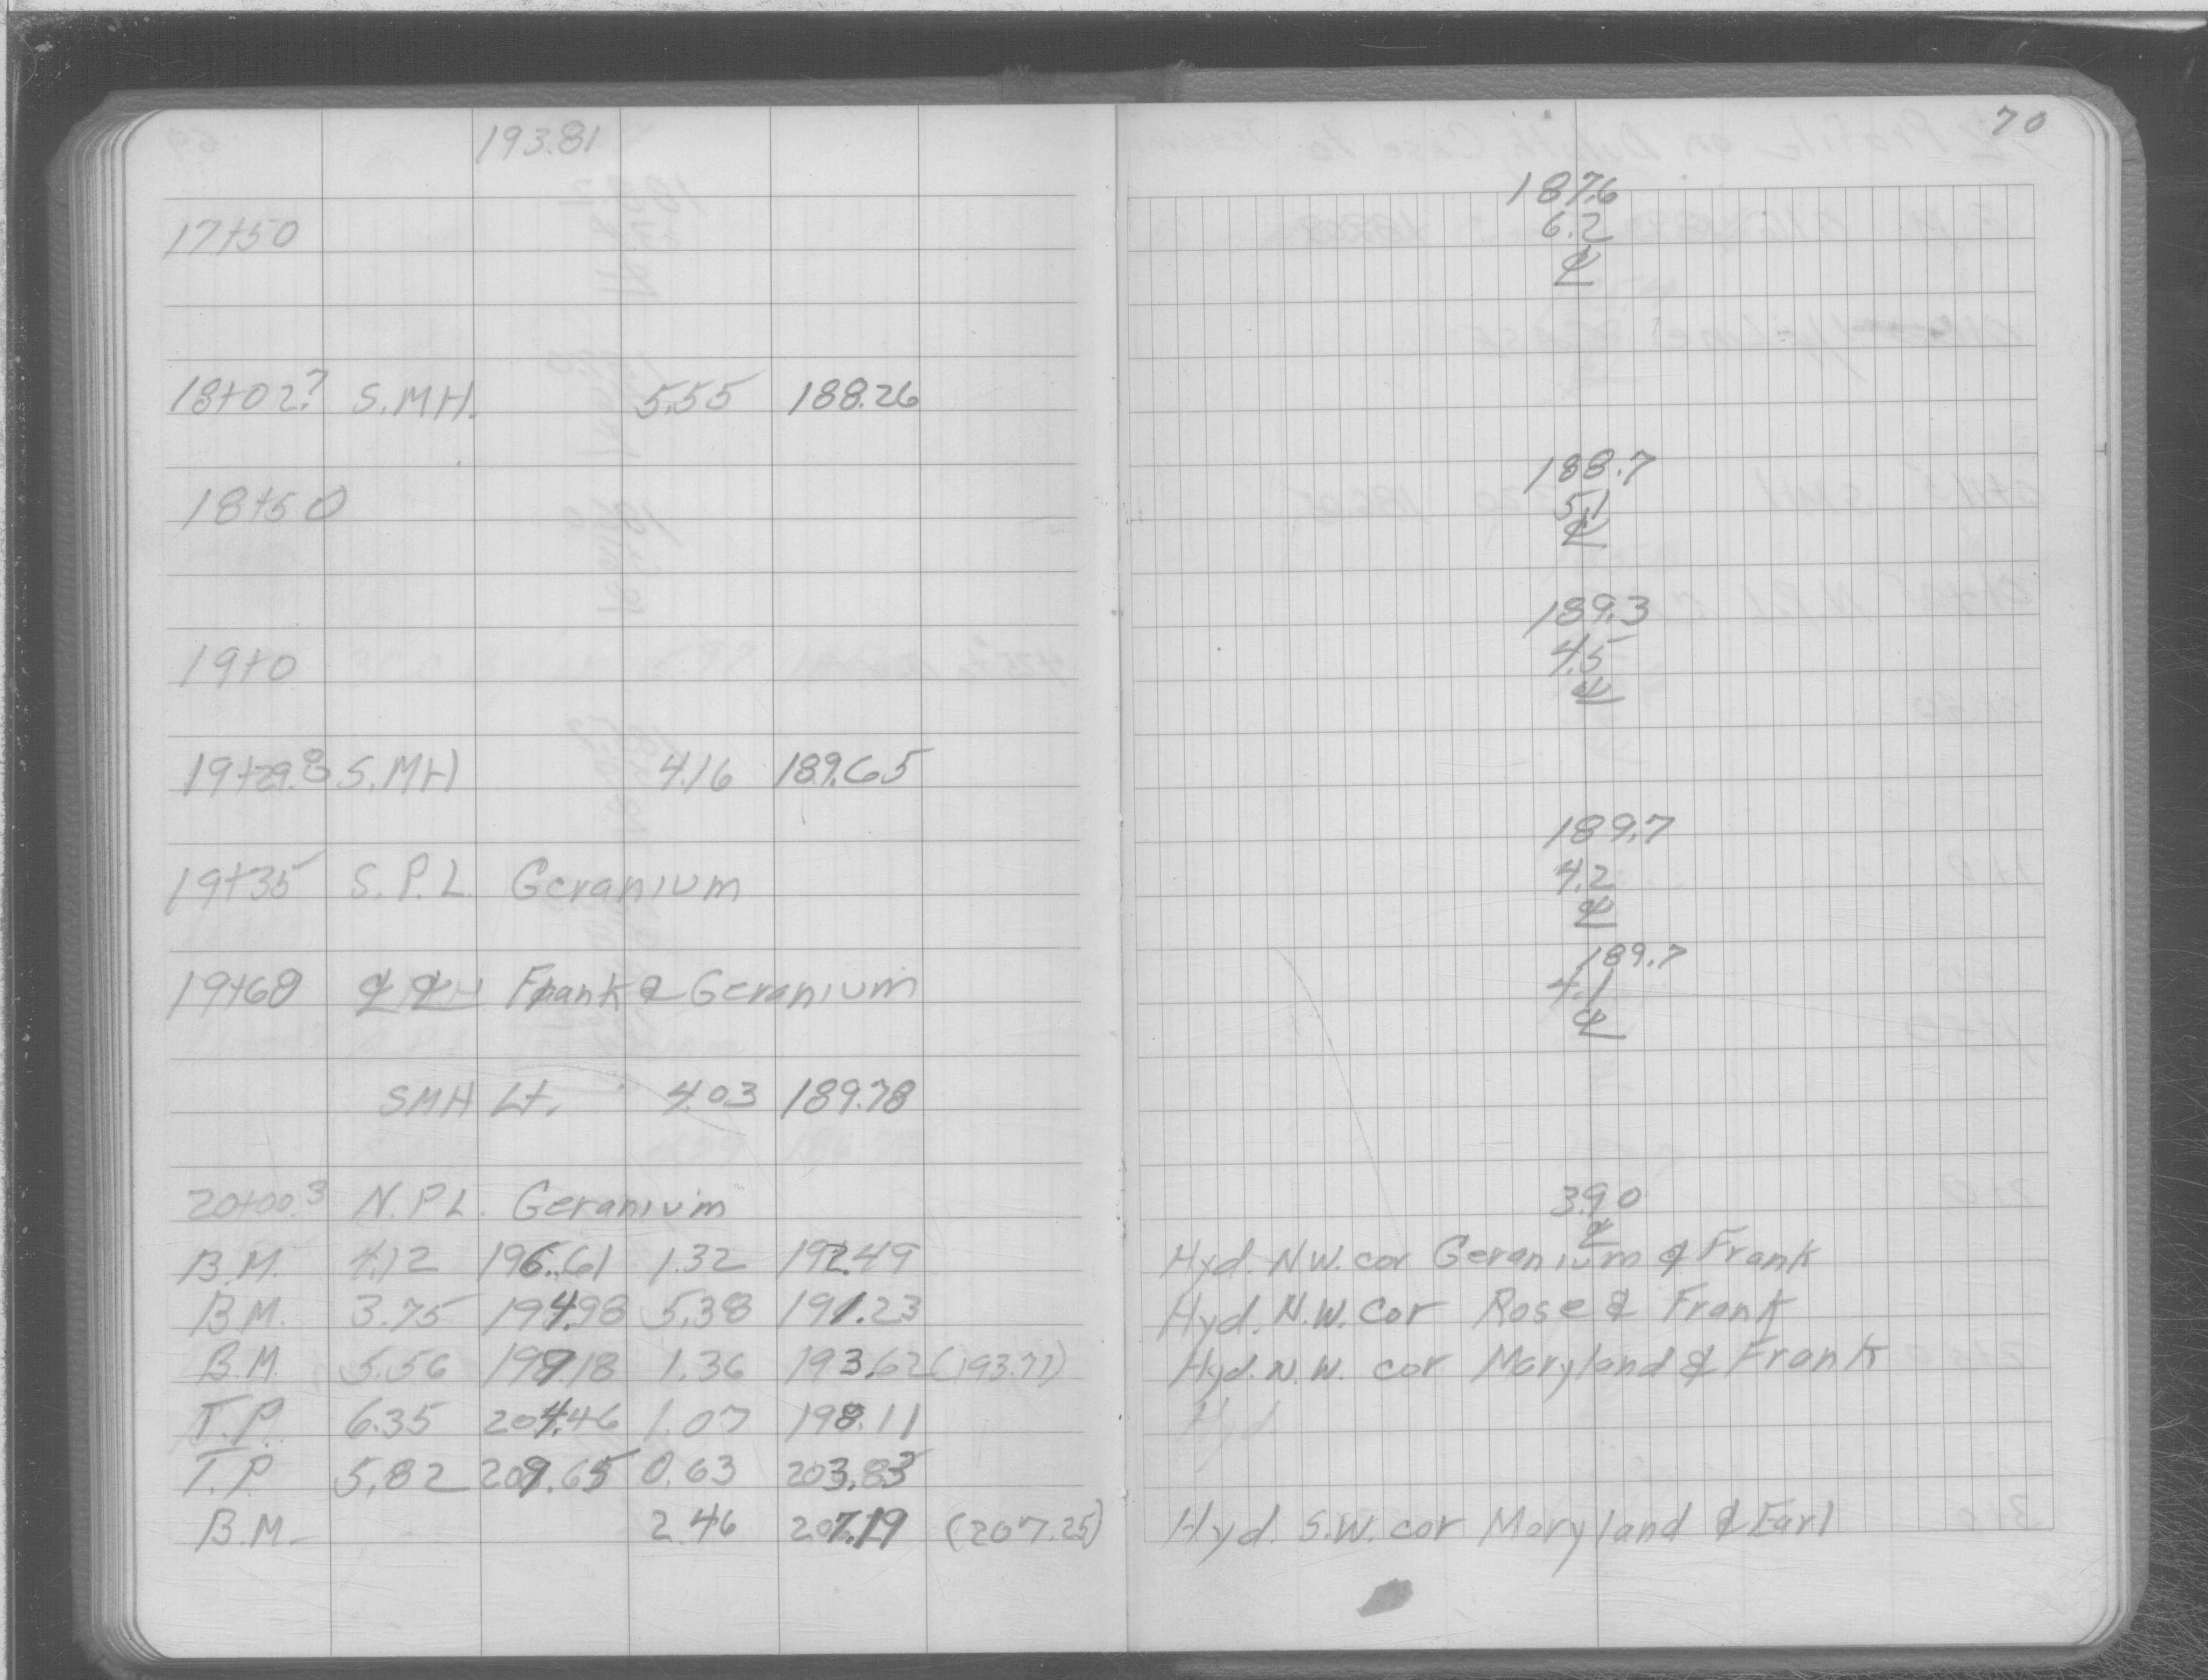 193.81
17+50
18+02? S.MH. 5.55 188.26
18+50
19+0
19+29.8 S.MH 4.16 189.65
19+35 S.P.L. Geranium
19+68 ℄ ℄ Frank & Geranium
SMH Lt. 4.03 189.78
20+00.3 N.P.L. Geranium
B.M. 4.12 196.61 1.32 192.49
B.M. 3.75 194.98 5.38 191.23
B.M. 5.56 199.18 1.36 193.62 (193.71)
T.P. 6.35 204.46 1.07 198.11
T.P. 5.82 209.65 0.63 203.83
B.M. 2.46 207.19 (207.25)
70
187.6
6.2
℄
188.7
5.1
℄
189.3
4.5
℄
189.7
4.2
℄
189.7
4.1
℄
3.90
℄
Hyd. N.W. cor Geranium & Frank
Hyd. N.W. Cor Rose & Frank
Hyd. N.W. cor Maryland & Frank
Hyd
Hyd. S.W. cor Maryland & Earl